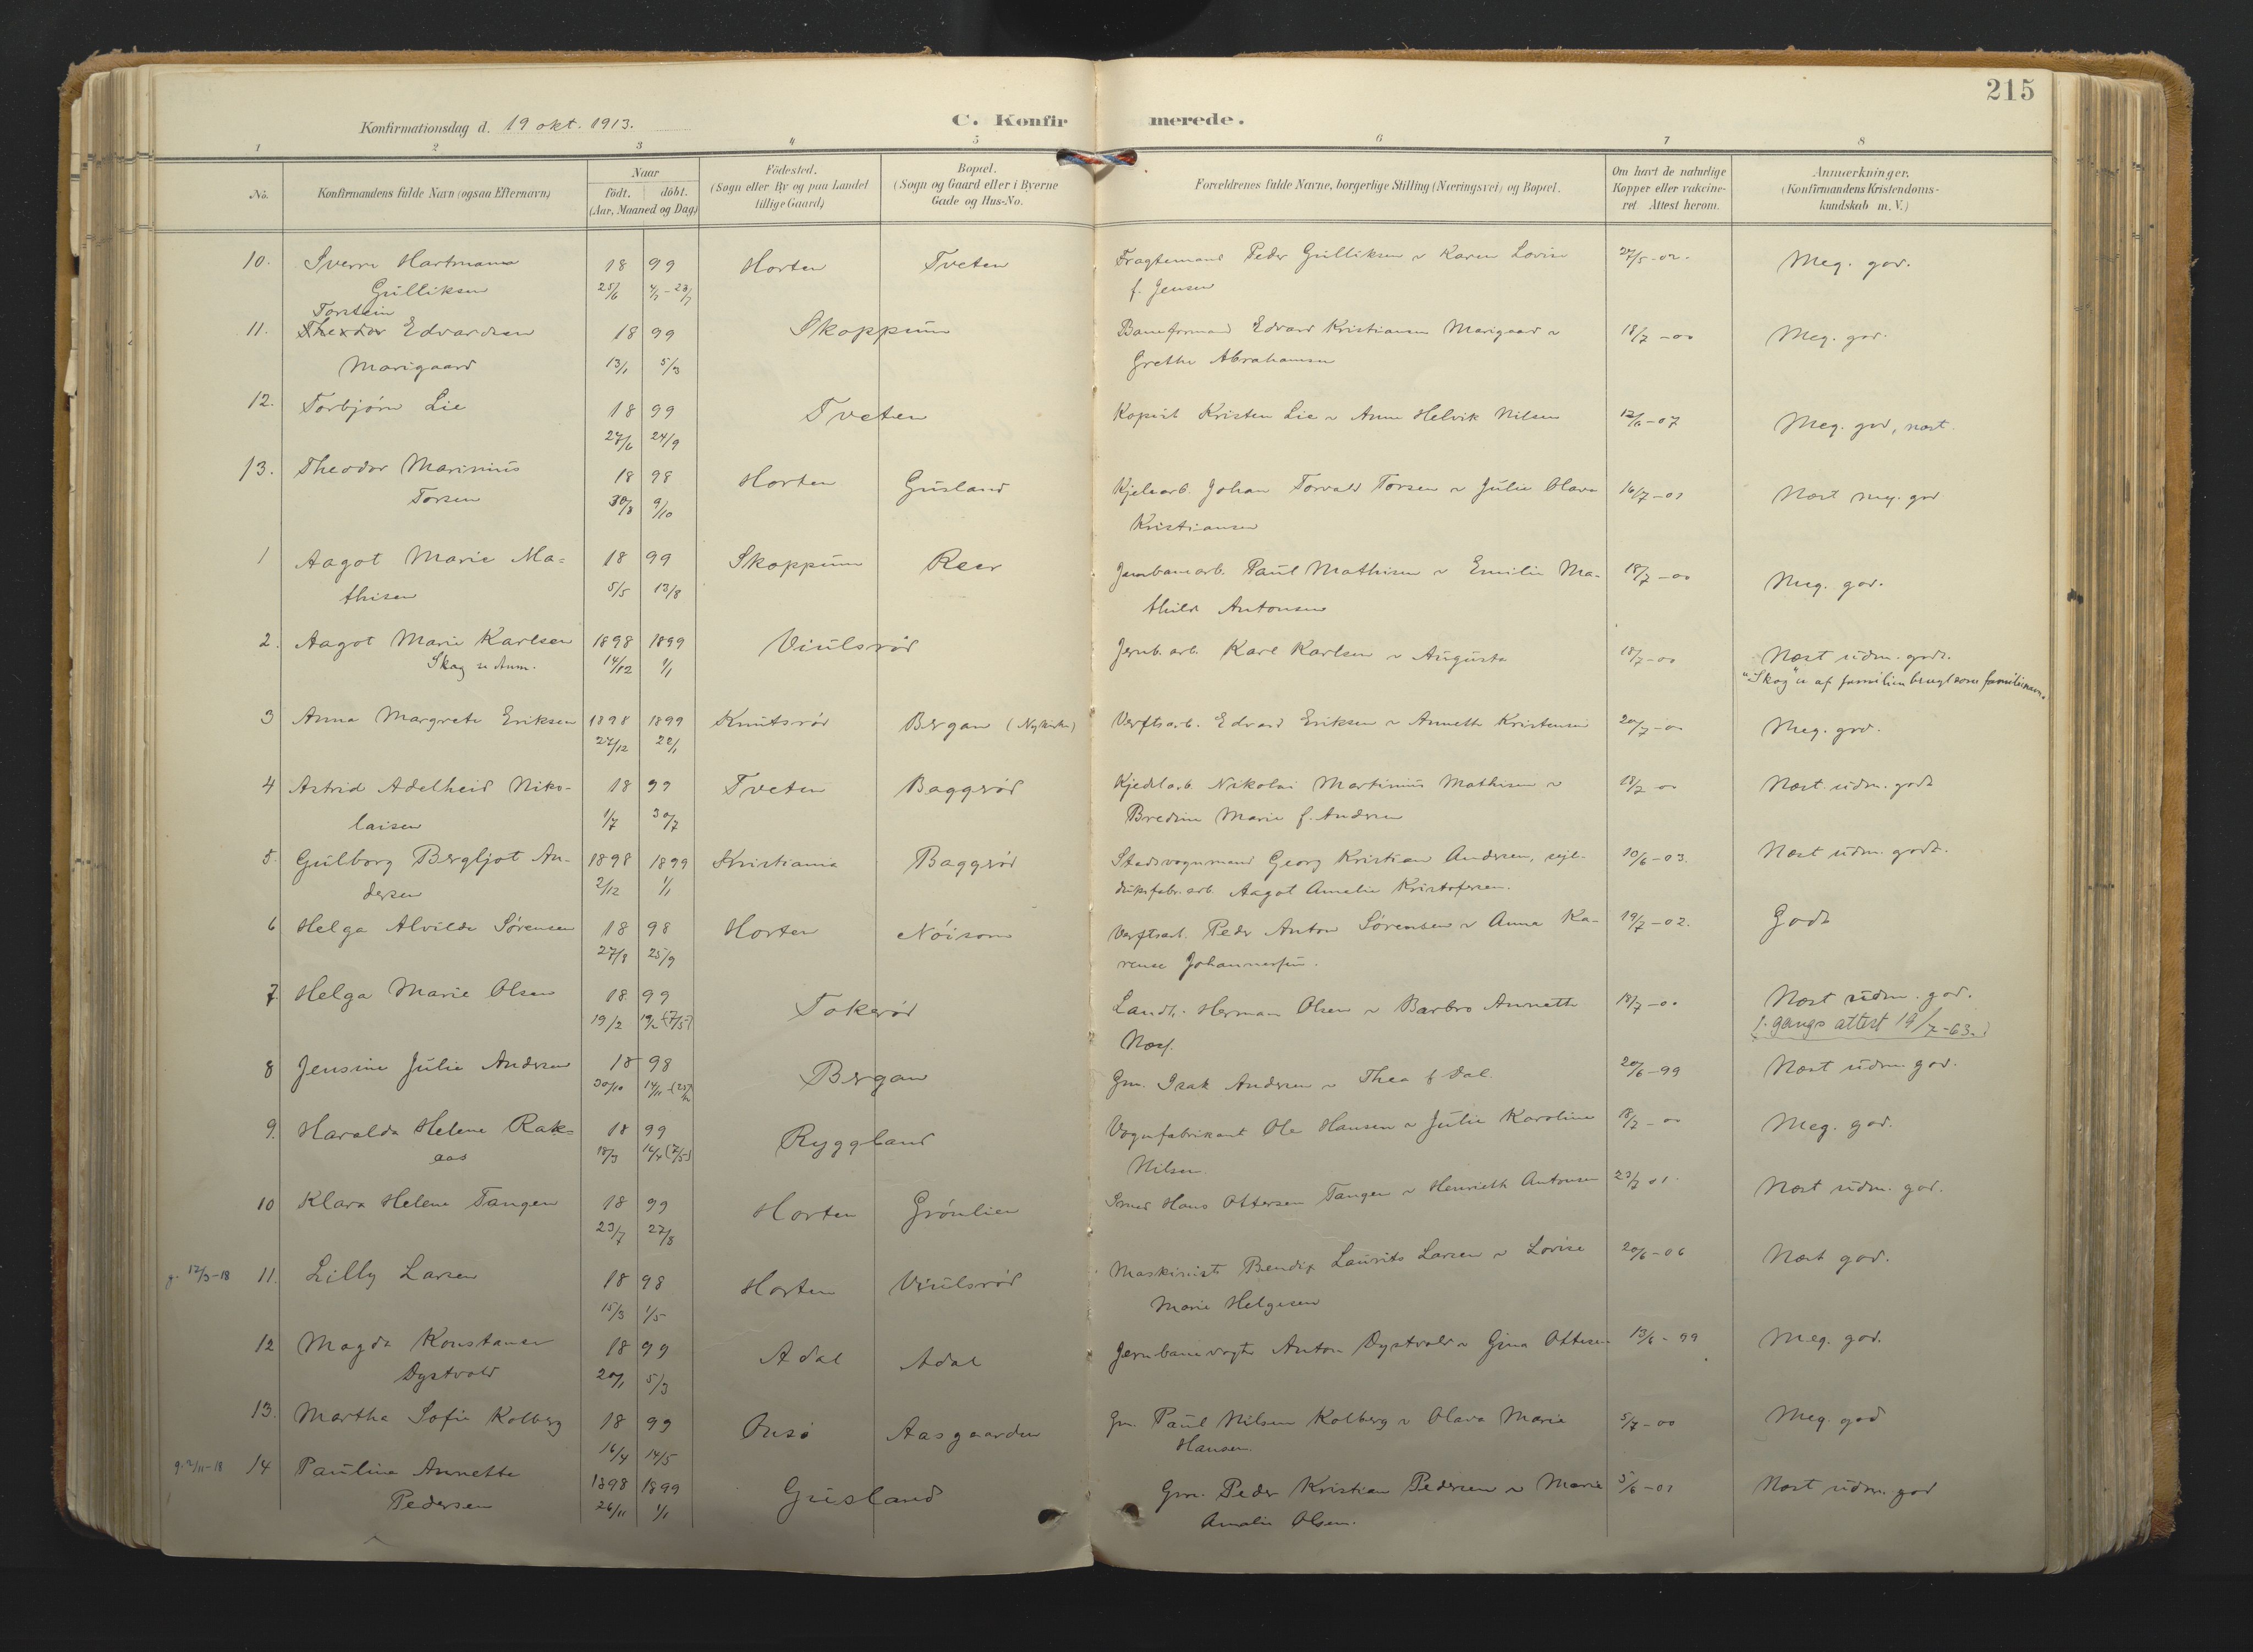 215
Konfirmationsdag d. 19 okt. 1913.
C. Konfirmerede.
1 2 3 4 5 6 7 8
No.
Konfirmandens fulde Navn (ogsaa Efternavn)
Naar
födt. döbt.
(Aar, Maaned og Dag)
Födested.
(Sogn eller By og paa Landet
tillige Gaard)
Bopæl.
(Sogn og Gaard eller i Byerne
Gade og Hus-No.
Forældrenes fulde Navne, borgerlige Stilling (Næringsvei) og Bopæl.
Om havt de naturlige
Kopper eller vakcine-
ret Attest herom.
Anmærkninger.
(Konfirmandens Kristendoms-
kundskab m. V.)
10. Sverre Hartmann 18 99 Horten Tveten Fragtemand Peder Gulliksen & Karen Lovise 27/5-02. Meg. god.
Gulliksen 25/6 f. Jensen
Torstein
11. Theodor Edvardsen 18 99 Skoppum Baneformand Edvard Kristiansen Marigaard & 18/7-00 Meg. god.
Marigaard 13/1 5/3 Grethe Abrahamsen
12. Torbjörn Lie 18 99 Tveten Kopist Kristen Lie & Anne Helvik Nilsen Meg. god, næst.
27/6 24/9
13. Theodor Marinius 18 98 Horten Gusland Kjelearb. Johan Torvald Torsen & Julie Olava 16/7-01 Næst meg. god
Torsen 30/8 9/10 Kristiansen
1 Aagot Marie Ma- 18 99 Skoppum Reer Jernbanearb. Paul Mathisen & Emilie Ma- 18/7-00 Meg. god.
thisen 5/5 13/8 thilde Antonsen
2. Aagot Marie Karlsen 1898 1899 Viulsröd Jernb. arb. Karl Karlsen & Augusta 18/7-00 Næst udm. godt.
Skog se Anm. 14/12 1/1 "Skog" er af familien brugt som familienavn.
3 Anna Margrete Eriksen 1898 1899 Knutsröd Bergan (Nykirke) Verftsarb. Edvard Eriksen & Annette Kristensen 20/7-00 Meg. god.
27/12 22/1
4 Astrid Adelheid Niko- 18 99 Tveten Baggeröd Kjedelarb. Nikolai Martinius Mathisen & 18/7 00 Næst udm. godt
laisen 1/7 30/7 Bredine Marie f. Andersen
5. Gulborg Bergljot An- 1898 1899 Kristiania Baggeröd Stadsvognmand Georg Kristian Andersen, sejl- 10/6-03. Næst udm. godt.
dersen 2/12 1/1 dukfabr. arb. Aagot Amalie Kristofersen.
6 Helga Alvilde Sörensen 18 98 Horten Nöisom Verftsarb. Peder Anton Sörensen & Anna Ka- 19/7-02. Godt
27/8 25/9 rense Johannessen.
7 Helga Marie Olsen 18 99 Tokeröd Landh. Herman Olsen & Barbro Annette 18/7-00 Næst udm. god.
19/2 Næs. 1. gangs attest 19/7-63.
8 Jensine Julie Andersen 18 98 Bergan Gm. Isak Andersen & Thea f Dal. 20/6-99 Næst udm. god.
30/10
9. Haralda Helene Rak- 18 99 Ryggland Vognfabrikant Ole Hansen & Julie Karoline 18/7-00 Meg. god.
aas 18/3 Nilsen.
10 Klara Helene Tangen 18 99 Horten Grönlien Smed Hans Ottersen Tangen & Henriette Antonsen 23/7 01. Næst udm. god.
23/7 27/8
g. 17/3-18 11. Lilly Larsen 18 98 Horten Viulsröd Maskinist Bendix Laurits Larsen & Lovise 20/6-06 Næst god.
15/3 1/5 Marie Helgesen
12 Magda Konstanse 18 99 Adal Adal Jernbanevogter Anton Dystvold & Gina Ottesen 13/6-99 Meg. god.
Dystvold 20/1 5/3
13. Martha Sofie Kolberg 18 99 Onsö Aasgaarden Gm. Paul Nilsen Kolberg & Olava Marie 5/7-00 Meg. god
16/4 14/5 Hansen.
g. 2/11-18 14 Pauline Annette 1898 1899 Gusland Gm. Peder Kristian Pedersen & Marie 5/6-01 Næst udm. god
Pedersen 26/11 1/1 Amalie Olsen.